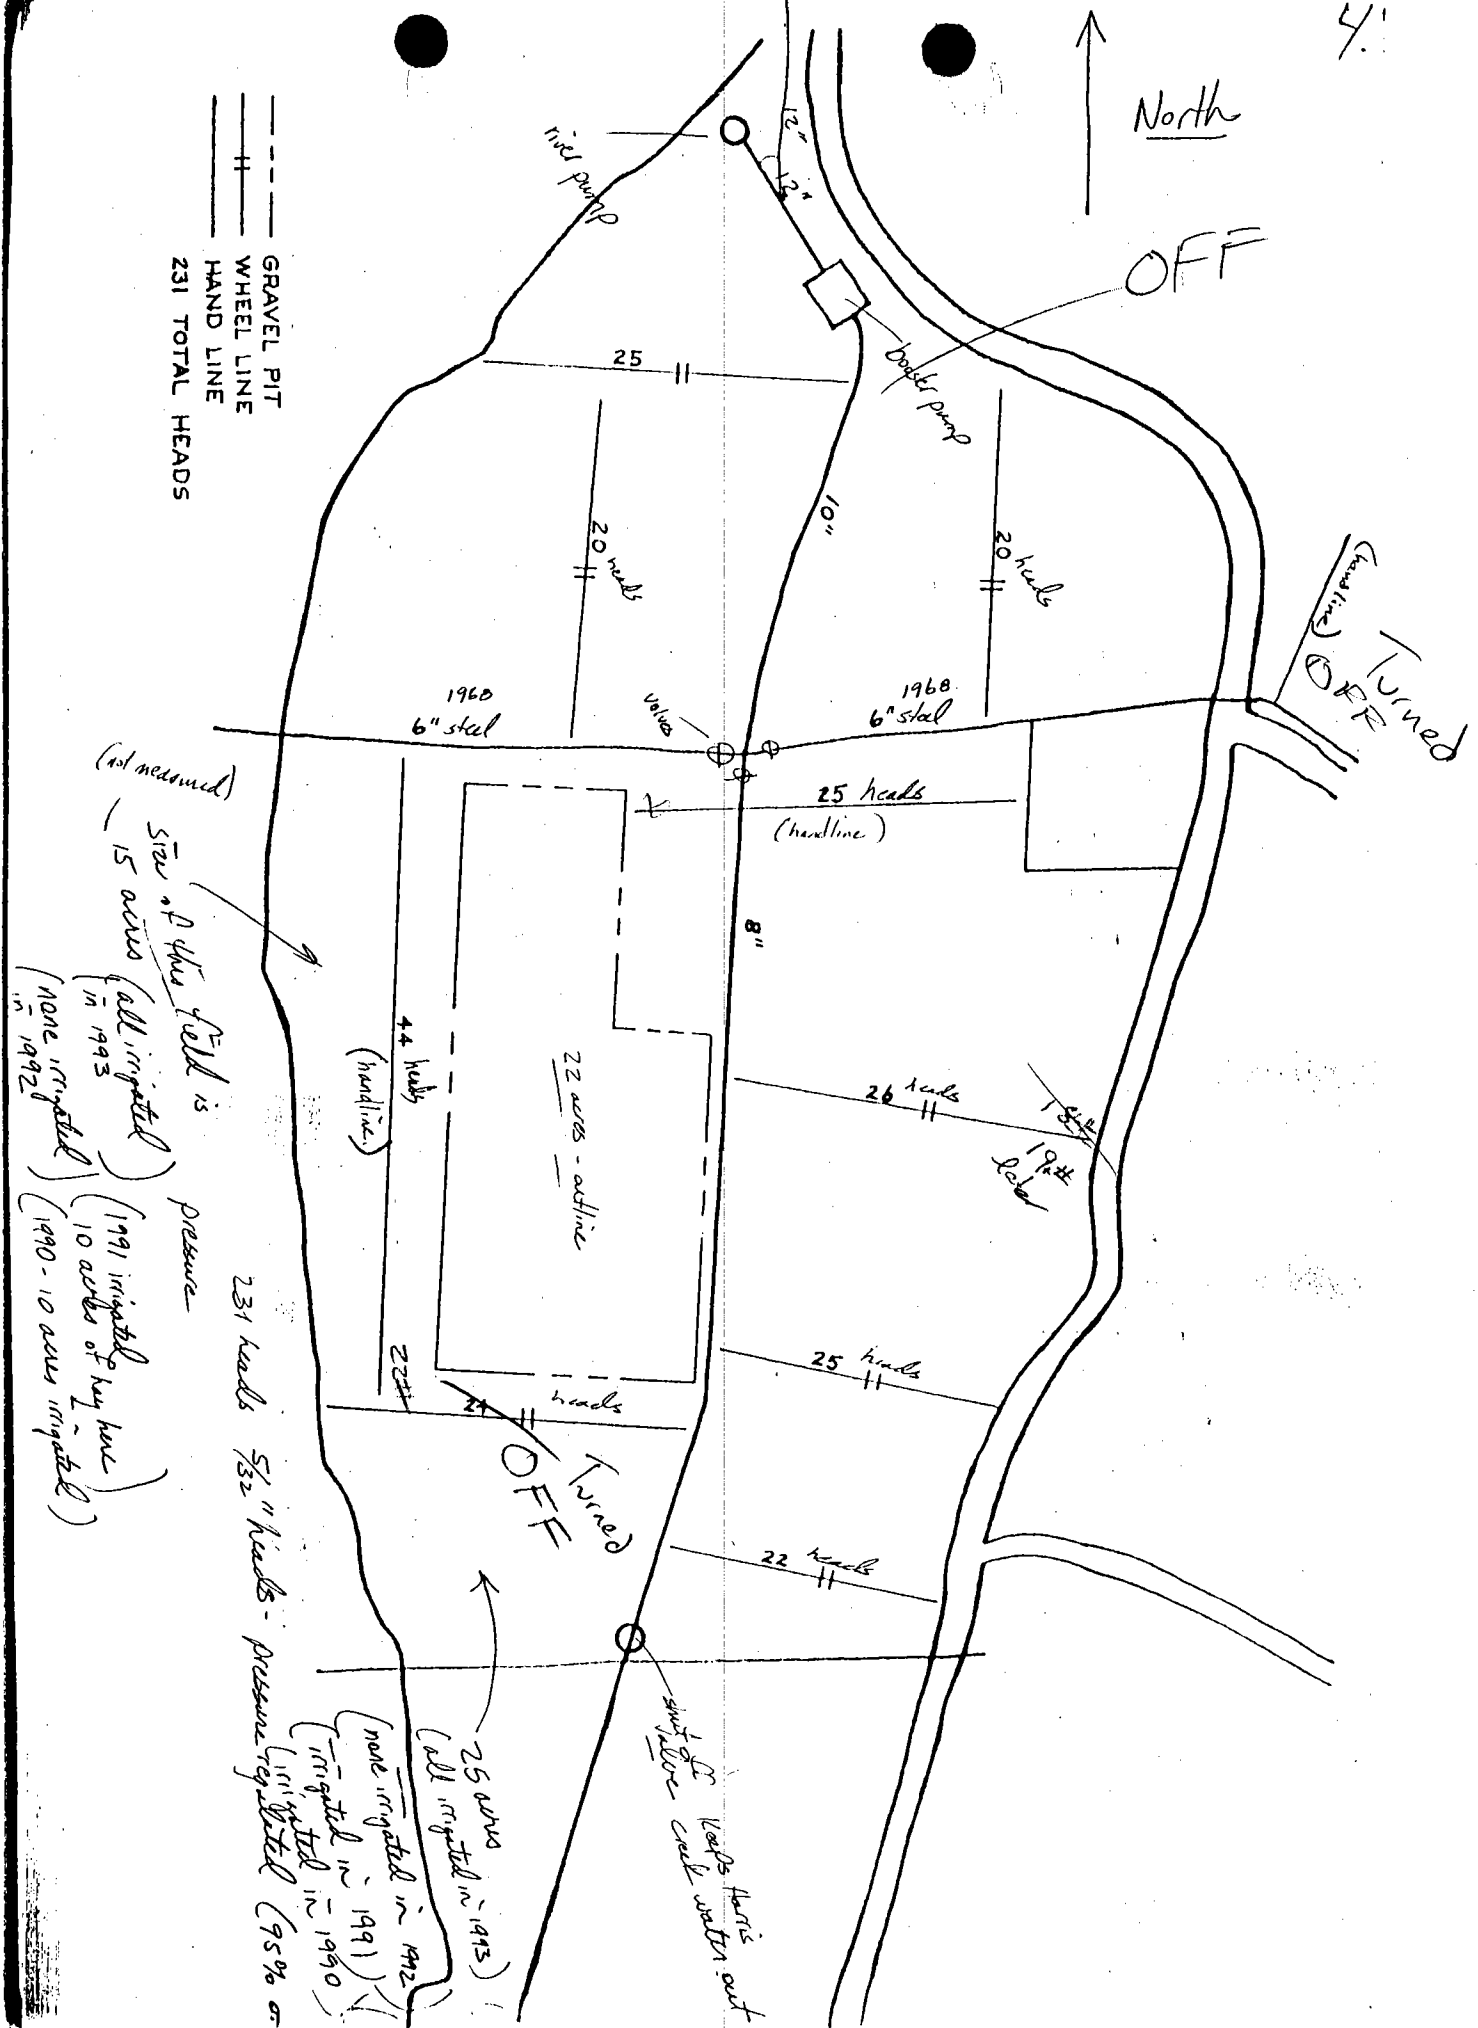 4.
North
OFF
12"
12"
river pump
booster pump
GRAVEL PIT
WHEEL LINE
HAND LINE
231 TOTAL HEADS
25
20 heads
10"
20 heads
(handline)
Turned
OFF
1968
6" steel
valves
1968
6" steel
25 heads
(handline)
8"
(not measured)
Size of this field is
15 acres (all irrigated
in 1993)
(none irrigated
in 1992)
(1991 irrigated
10 acres of hay here)
(1990 - 10 acres irrigated)
44 heads
(handline)
22 acres - outline
26 heads
19
later
pressure
22#
24 heads
Turned
OFF
25 heads
22 heads
231 heads 5/32" heads - pressure regulated (95% o
25 acres
(all irrigated in 1993)
(none irrigated in 1992)
(irrigated in 1991)
(irrigated in 1990)
shut off keeps Harris
valve creek water out